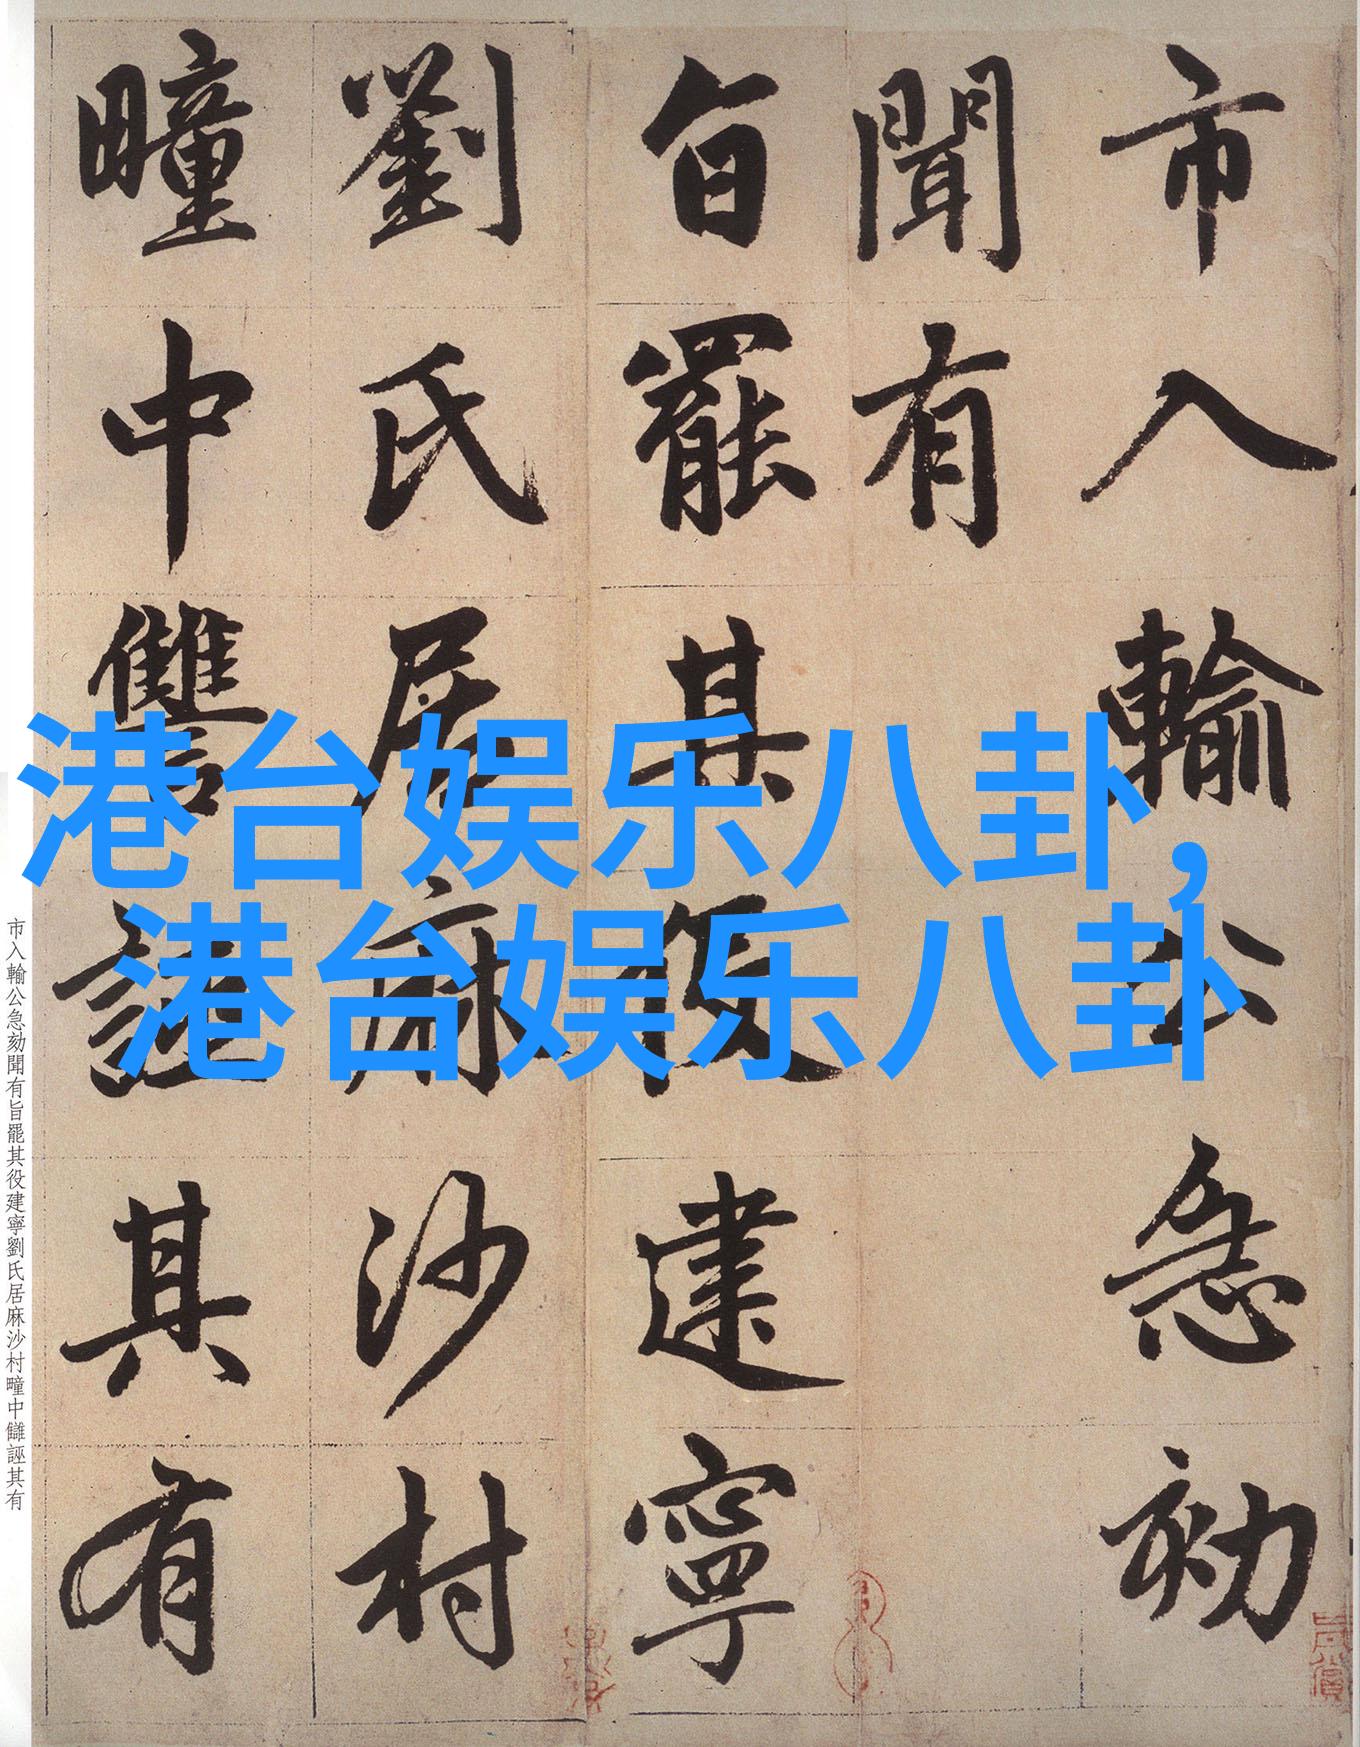 港台娱乐八卦,
港台娱乐八卦
市入輸公急劾
聞有
旨罷其役建寧
劉氏居麻沙村
疃中讐誣其有
市入輸公急劾聞有旨罷其役建寧劉氏居麻沙村疃中讎誣其有